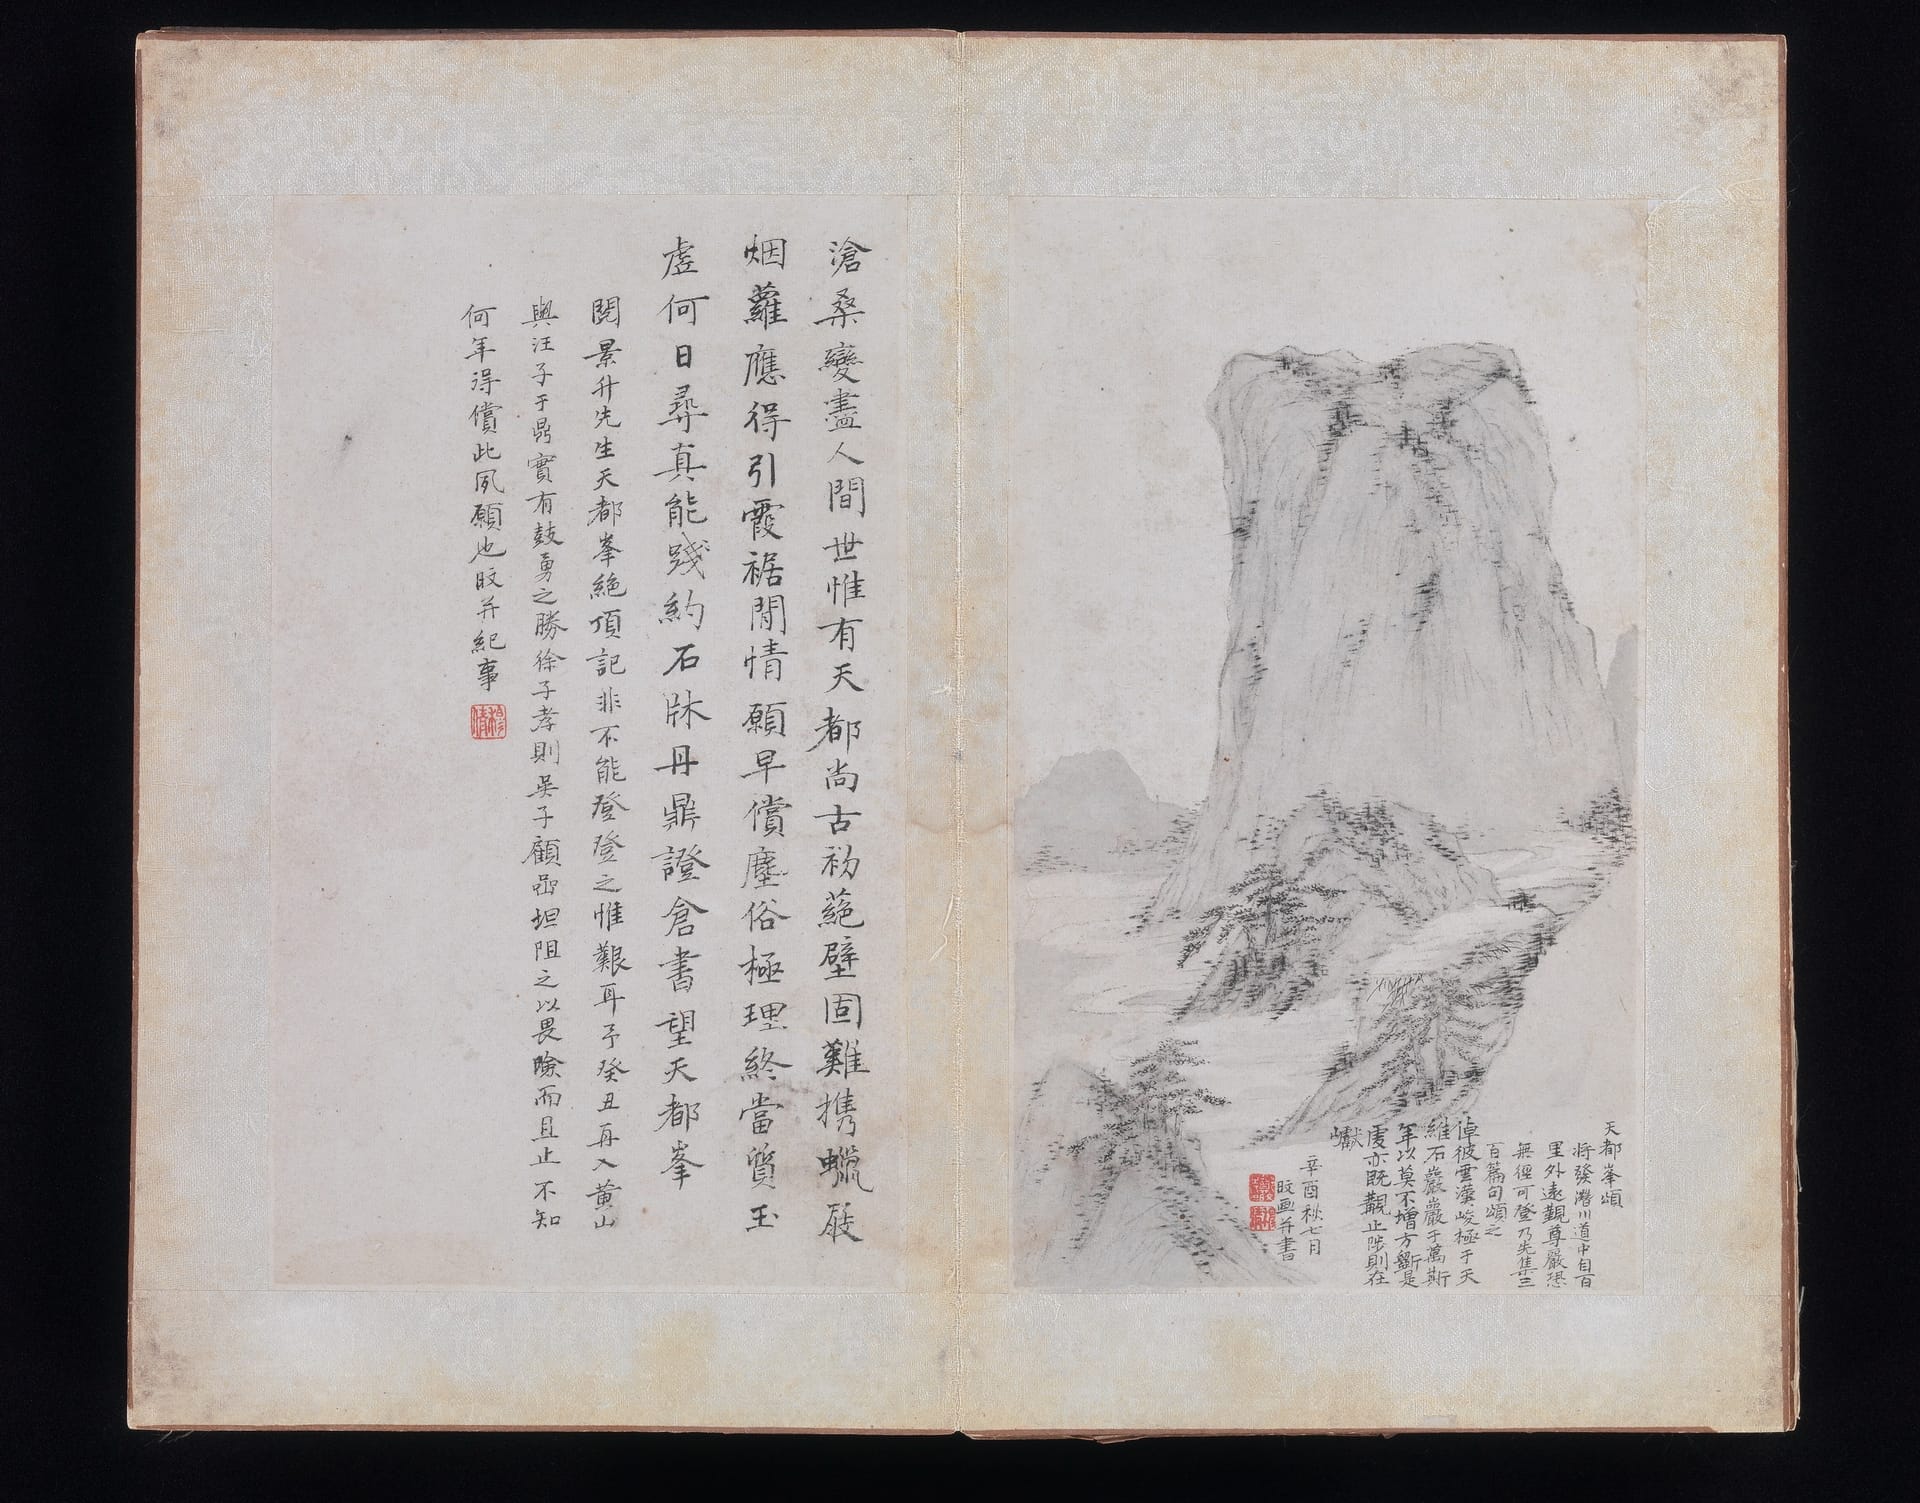 天都峯頌
將發潛川道中自百
里外遠觀尊嚴恐
無徑可登乃先集三
百篇句頌之
倬彼雲漢峻極于天
維石巖巖于萬斯
年以莫不增方斲是
虔亦既覯止陟則在
巘
辛酉秋七月
旼画并書
滄桑變盡人間世惟有天都尚古初蕝壁固難携蠟屐
烟蘿應得引霞裾閒情願早償塵俗極理終當質玉
虛何日尋真能踐約石牀丹鼎證倉書望天都峯
閱景升先生天都峯絕頂記非不能登登之惟艱耳予癸丑再入黄山
與汪子于鼎實有鼓勇之勝徐子孝則吳子顧嵒坦阻之以畏險而且止不知
何年得償此夙願也旼并紀事